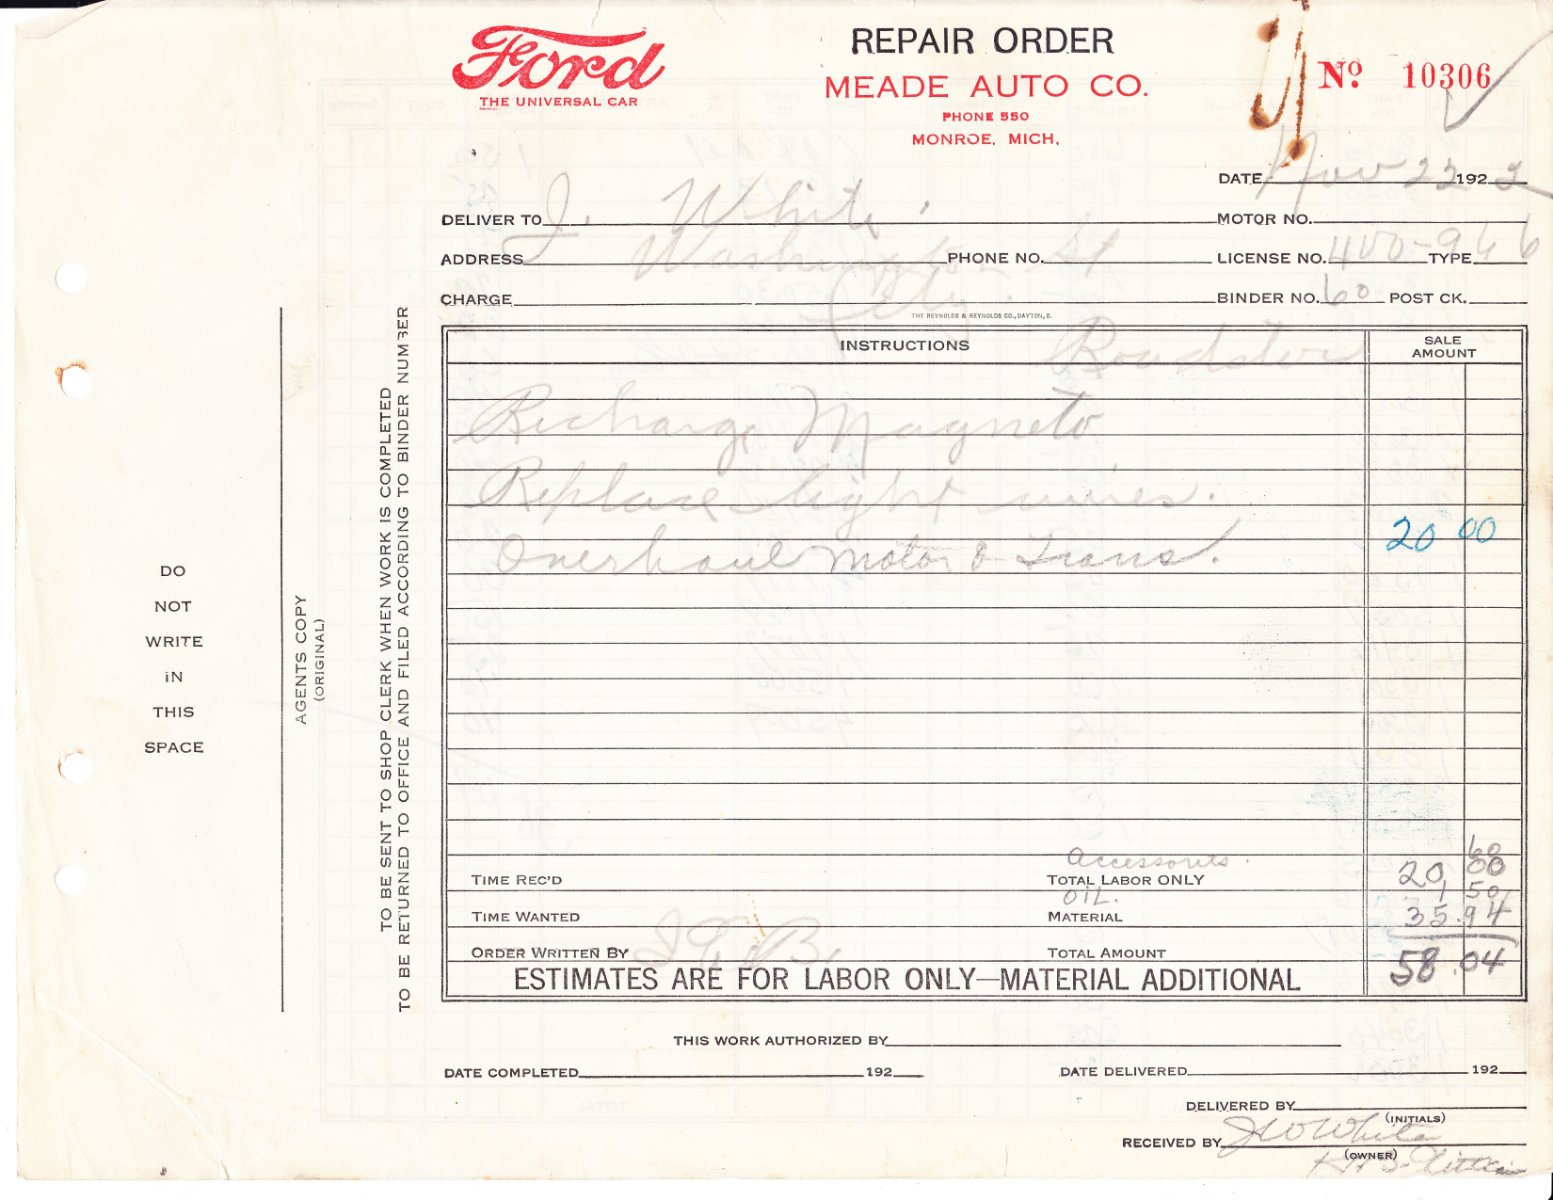 Ford
THE UNIVERSAL CAR
REPAIR ORDER
MEADE AUTO CO.
PHONE 550
MONROE, MICH.
Nº 10306
DATE Nov 22 1922
DELIVER TO J. White MOTOR NO.
ADDRESS Washington St PHONE NO. LICENSE NO. 400-966 TYPE
CHARGE City. BINDER NO. 60 POST CK.
THE REYNOLDS & REYNOLDS CO., DAYTON, O.
INSTRUCTIONS Roadster SALE AMOUNT
Recharge Magneto
Replace light wires.
Overhaul motor & Trans. 20 00
accessories. 60
TIME REC'D TOTAL LABOR ONLY 20 00
OIL. 1 50
TIME WANTED MATERIAL 35.94
ORDER WRITTEN BY TOTAL AMOUNT 58.04
ESTIMATES ARE FOR LABOR ONLY—MATERIAL ADDITIONAL
THIS WORK AUTHORIZED BY
DATE COMPLETED 192 DATE DELIVERED 192
DELIVERED BY
(INITIALS)
RECEIVED BY J W White
(OWNER)
DO
NOT
WRITE
IN
THIS
SPACE
AGENTS COPY
(ORIGINAL)
TO BE SENT TO SHOP CLERK WHEN WORK IS COMPLETED
TO BE RETURNED TO OFFICE AND FILED ACCORDING TO BINDER NUMBER